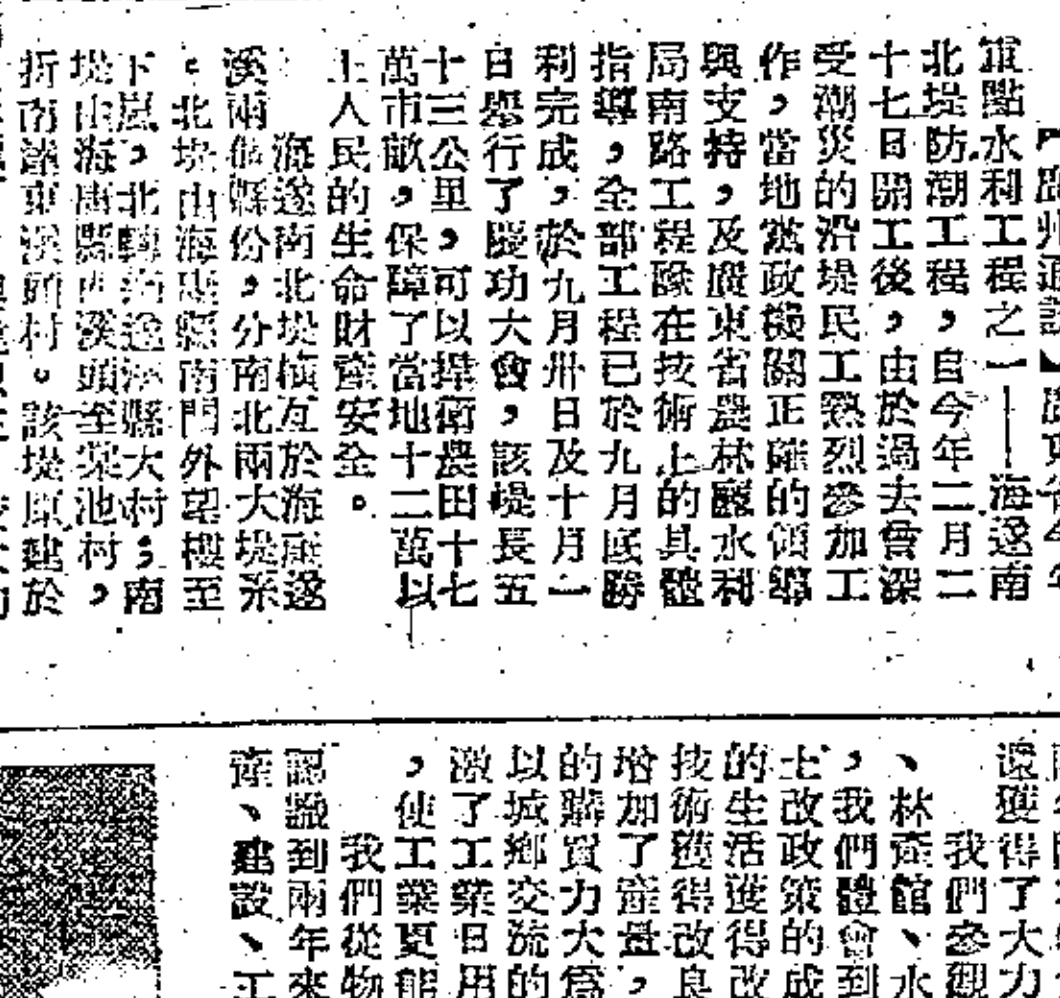 重點水利工程之一——海遂南
北堤防潮工程，自今年二月二
十七日開工後，由於過去曾深
受潮災的沿堤民工熱烈參加工
作，當地黨政機關正確的領導
與支持，及廣東省農林廳水利
局南路工程隊在技術上的具體
指導，全部工程已於九月底勝
利完成，於九月卅日及十月一
日舉行了慶功大會，該堤長五
十三公里，可以捍衛農田十七
萬市畝，保障了當地十二萬以
上人民的生命財產安全。
海遂南北堤橫亙於海康遂
溪兩個縣份，分南北兩大堤系
。北堤由海康縣南門外望樓至
下嵐，北轉遂溪縣大村；南
堤由海康縣西溪頭至菉池村，
折南東溪頭村。該堤原建於
獲得了大力
我們參觀
、林產館、水
，我們體會到
土改政策的成
的生活獲得改
技術獲得改良
增加了產量，
的購買力大為
以城鄉交流的
激了工業日用
，使工業更能
我們從物
認識到兩年來
產、建設、工